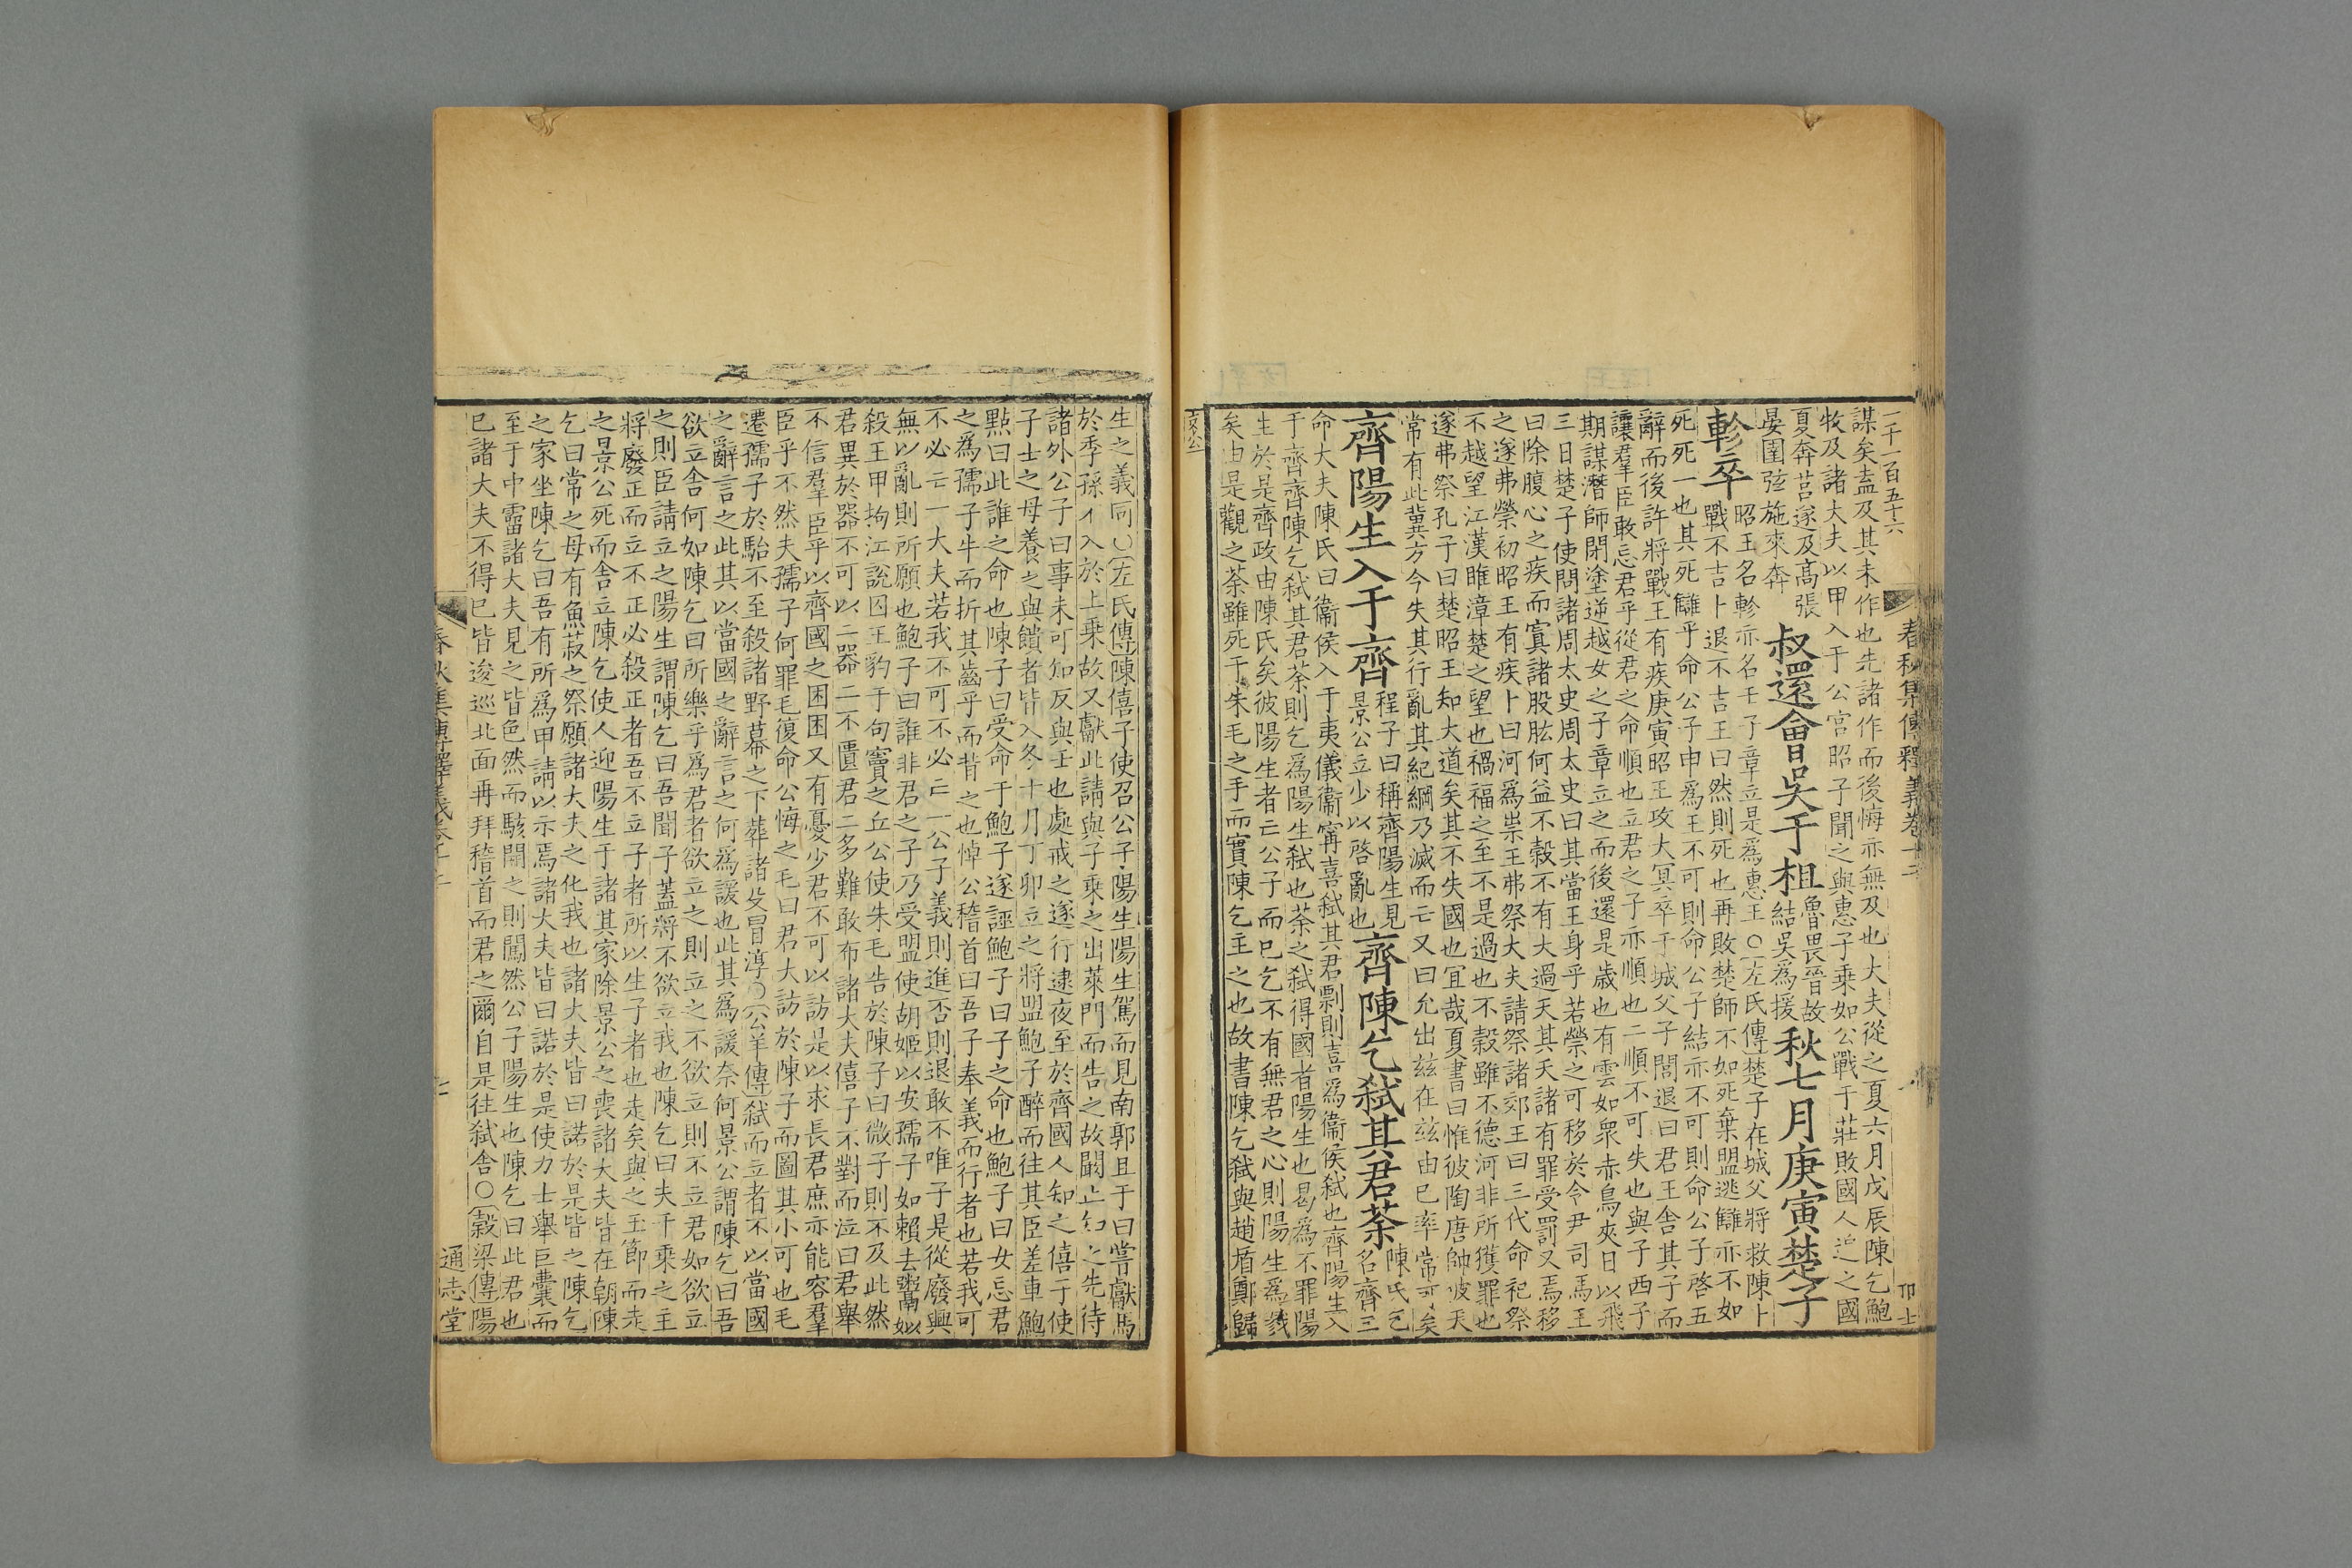 一千一百五十六
春秋集傳釋義卷十二
謀矣盍及其未作也先諸作而後悔亦無及也大夫從之夏六月戊辰陳乞鮑
牧及諸大夫以甲入于公宮昭子聞之與惠子乗如公戰于莊敗國人追之國
夏奔莒遂及髙張
晏圉弦施來奔
叔還會吳于柤
魯畏晉故
結吳爲援
秋七月庚寅楚子
軫卒
昭王名軫亦名壬子章立是爲惠王○左氏傳楚子在城父將救陳卜
戰不吉卜退不吉王曰然則死也再敗楚師不如死棄盟逃讎亦不如
死死一也其死讎乎命公子申爲王不可則命公子結亦不可則命公子啓五
辭而後許將戰王有疾庚寅昭王攻大冥卒于城父子閭退曰君王舎其子而
讓羣臣敢忘君乎從君之命順也立君之子亦順也二順不可失也與子西子
期謀潛師閉塗逆越女之子章立之而後還是歳也有雲如衆赤鳥夾日以飛
三日楚子使問諸周太史周太史曰其當王身乎若禜之可移於令尹司馬王
曰除腹心之疾而寘諸股肱何益不榖不有大過天其夭諸有罪受罰又焉移
之遂弗禜初昭王有疾卜曰河爲祟王弗祭大夫請祭諸郊王曰三代命祀祭
不越望江漢睢漳楚之望也禍福之至不是過也不榖雖不德河非所獲罪也
遂弗祭孔子曰楚昭王知大道矣其不失國也宜哉夏書曰惟彼陶唐帥彼天
常有此冀方今失其行亂其紀綱乃滅而亡又曰允出兹在兹由已率常可矣
齊陽生入于齊
程子曰稱齊陽生見
景公立少以啓亂也
齊陳乞弑其君荼
陳氏乞
名齊三
命大夫陳氏曰衞侯入于夷儀衞甯喜弑其君剽則喜爲衞侯弑也齊陽生入
于齊齊陳乞弑其君荼則乞爲陽生弑也荼之弑得國者陽生也曷爲不罪陽
生於是齊政由陳氏矣彼陽生者亡公子而已乞不有無君之心則陽生爲戮
矣由是觀之荼雖死于朱毛之手而實陳乞主之也故書陳乞弑與趙盾鄭歸
生之義同○左氏傳陳僖子使召公子陽生陽生駕而見南郭且于曰嘗獻馬
於季孫不入於上乗故又獻此請與子乗之出萊門而告之故闞止知之先待
諸外公子曰事未可知反與壬也處戒之遂行逮夜至於齊國人知之僖子使
子士之母養之與饋者皆入冬十月丁卯立之將盟鮑子醉而往其臣差車鮑
點曰此誰之命也陳子曰受命于鮑子遂誣鮑子曰子之命也鮑子曰女忘君
之爲孺子牛而折其齒乎而背之也悼公稽首曰吾子奉義而行者也若我可
不必亡一大夫若我不可不必亡一公子義則進否則退敢不唯子是從廢興
無以亂則所願也鮑子曰誰非君之子乃受盟使胡姬以安孺子如賴去鬻姒
殺王甲拘江說囚王豹于句竇之丘公使朱毛告於陳子曰微子則不及此然
君異於器不可以二器二不匱君二多難敢布諸大夫僖子不對而泣曰君舉
不信羣臣乎以齊國之困困又有憂少君不可以訪是以求長君庶亦能容羣
臣乎不然夫孺子何罪毛復命公悔之毛曰君大訪於陳子而圖其小可也毛
遷孺子於駘不至殺諸野幕之下葬諸殳冒淳○公羊傳弑而立者不以當國
之辭言之此其以當國之辭言之何爲諼也此其爲諼奈何景公謂陳乞曰吾
欲立舎何如陳乞曰所樂乎爲君者欲立之則立之不欲立則不立君如欲立
之則臣請立之陽生謂陳乞曰吾聞子蓋將不欲立我也陳乞曰夫千乗之主
將廢正而立不正必殺正者吾不立子者所以生子者也走矣與之玉節而走
之景公死而舎立陳乞使人迎陽生于諸其家除景公之喪諸大夫皆在朝陳
乞曰常之母有魚菽之祭願諸大夫之化我也諸大夫皆曰諾於是皆之陳乞
之家坐陳乞曰吾有所爲甲請以示焉諸大夫皆曰諾於是使力士舉巨囊而
至于中霤諸大夫見之皆色然而駭開之則闖然公子陽生也陳乞曰此君也
已諸大夫不得已皆逡巡北面再拜稽首而君之爾自是往弑舎○榖梁傳陽
春秋集傳釋義卷十二
通志堂